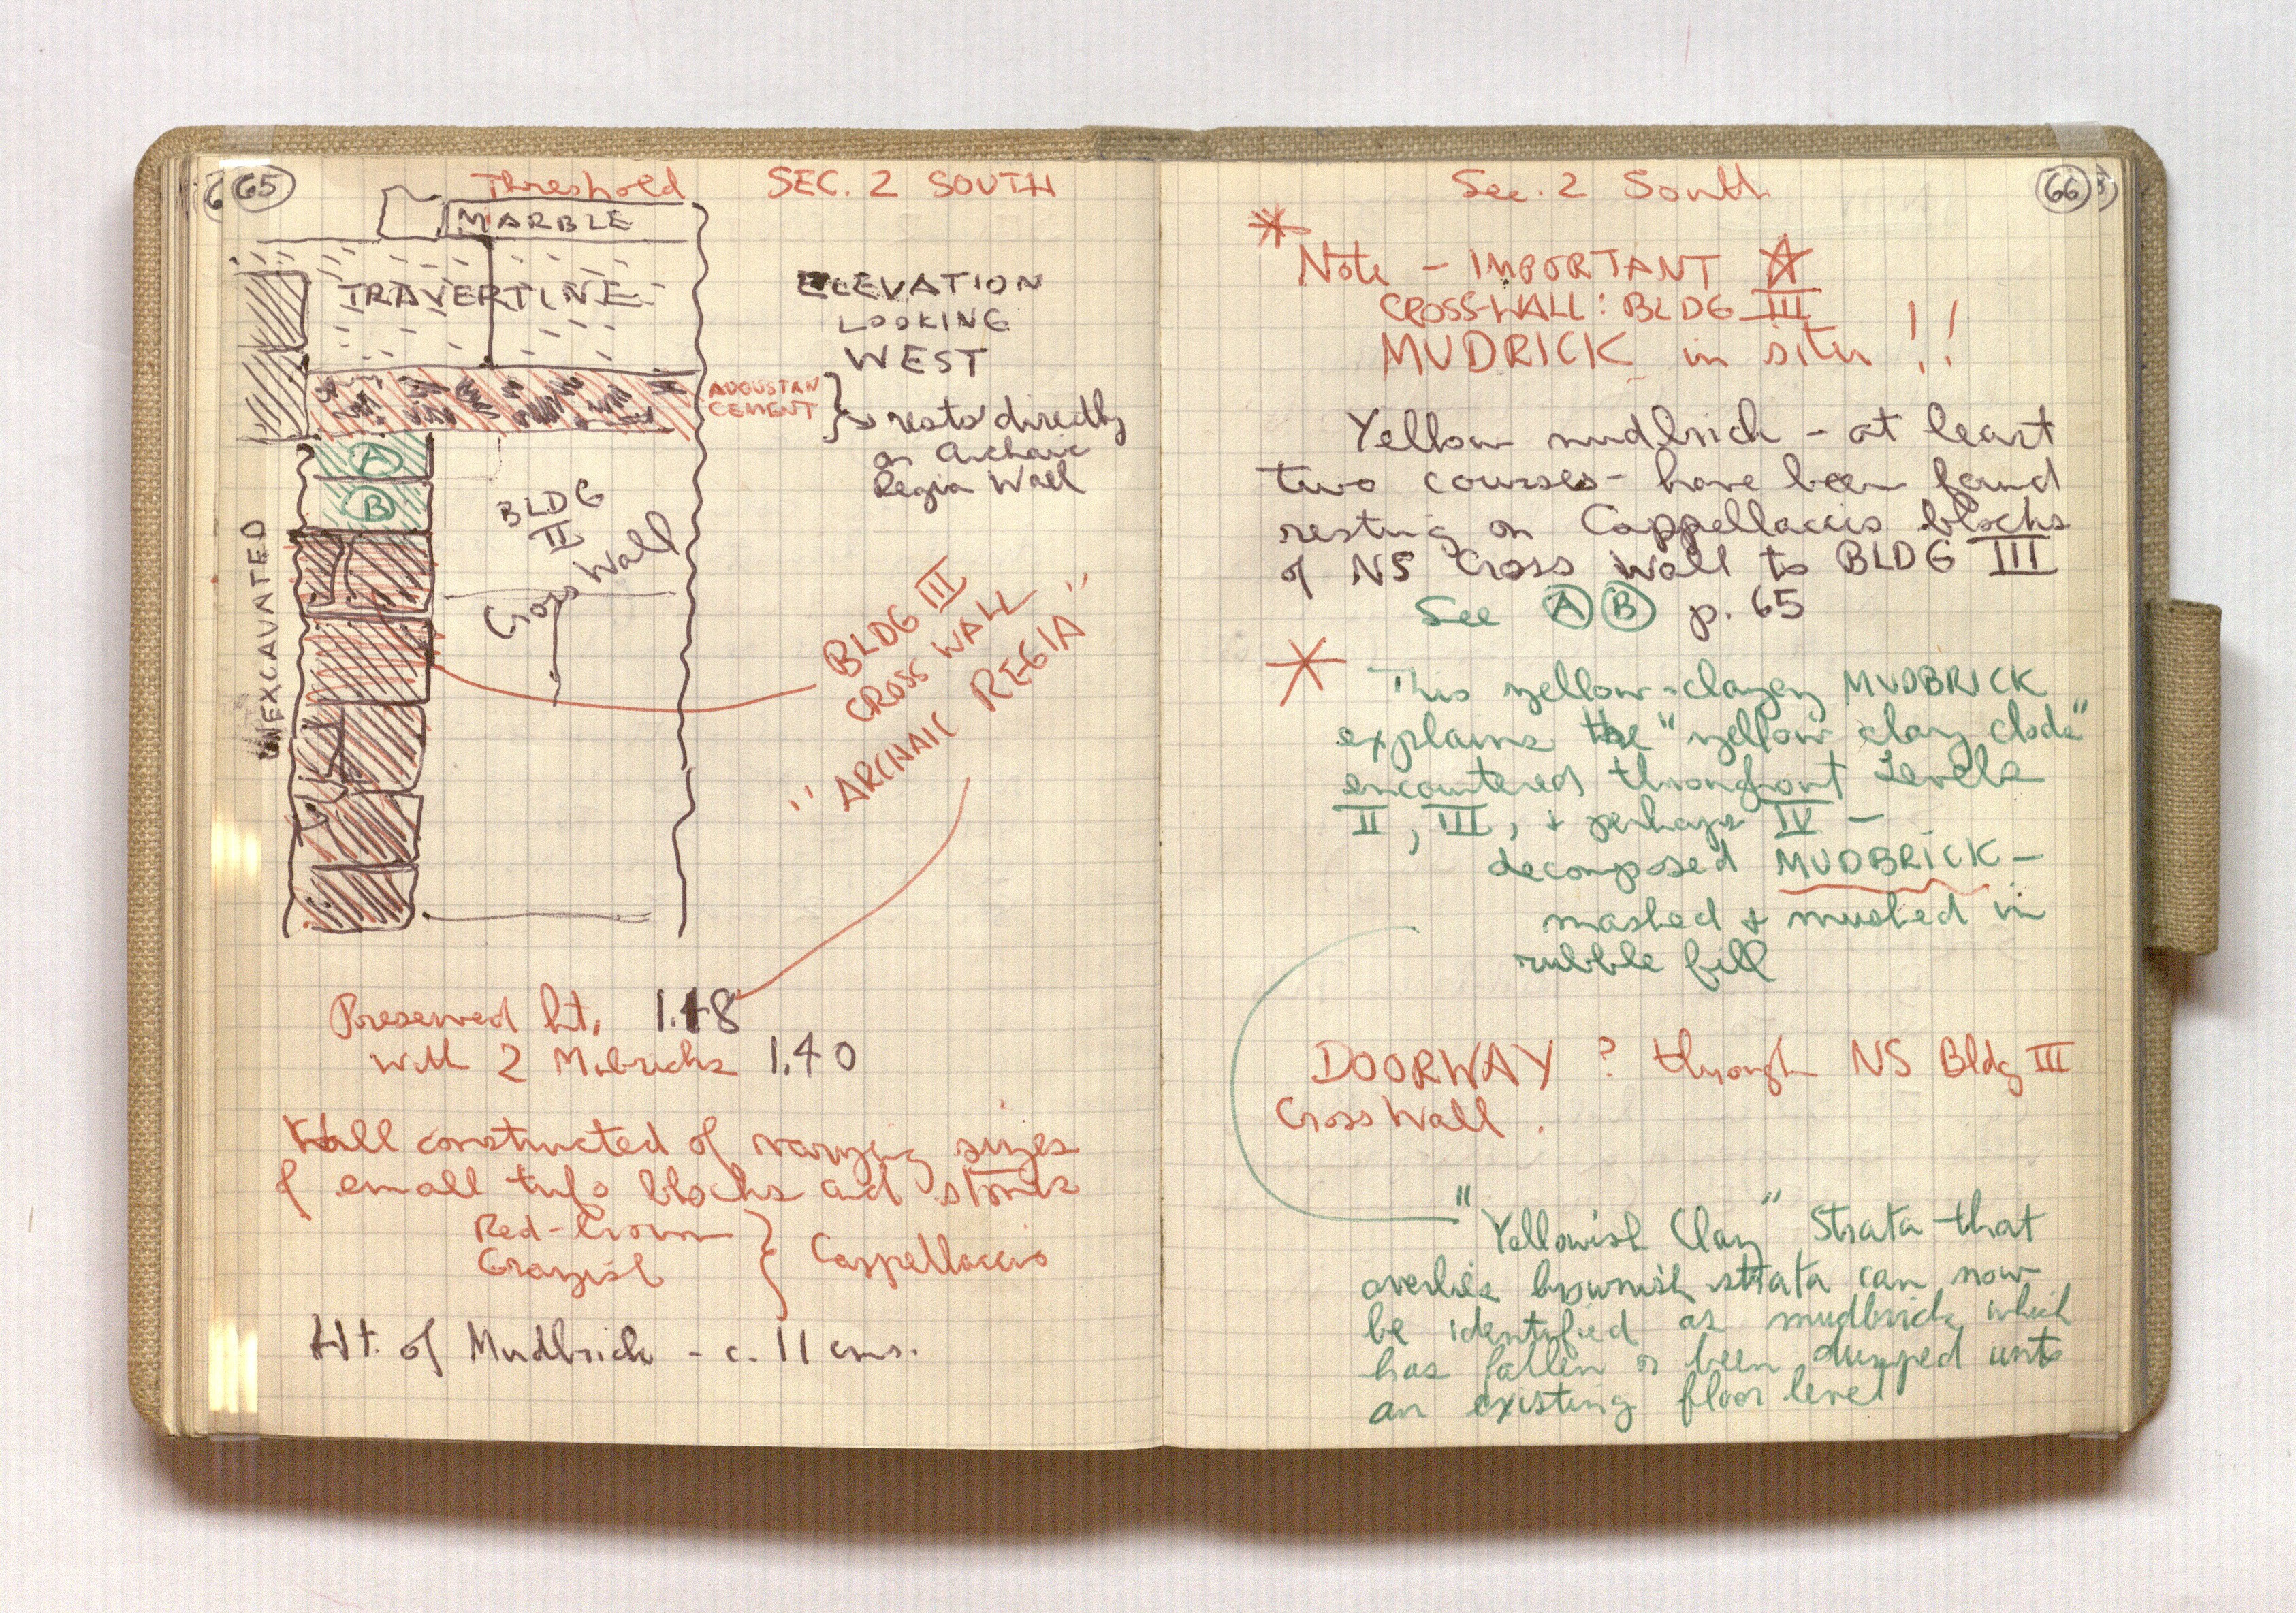 65
Threshold SEC. 2 SOUTH
MARBLE
TRAVERTINE
ELEVATION
LOOKING
WEST
AUGUSTAN
CEMENT
rests directly
on Archaic
Regia Wall
A
B
BLDG
II
Cross Wall
UNEXCAVATED
BLDG III
CROSS WALL
"ARCHAIC REGIA"
Preserved ht. 1.18
with 2 Mubricks 1.40
Wall constructed of varying sizes
of small tufo blocks and stones
Red-brown
Grayish
Cappellaccio
Ht. of Mudbrick - c. 11 cms.
66
Sec. 2 South
Note - IMPORTANT
CROSS-WALL: BLDG III
MUDRICK in situ !!
Yellow mudbrick - at least
two courses - have been found
resting on Cappellaccio blocks
of NS Cross Wall to BLDG III
See A B p. 65
This yellow-clayey MUDBRICK
explains the "yellow clay clods"
encountered throughout Levels
II, III, + perhaps IV -
decomposed MUDBRICK -
mashed + mushed in
rubble fill
DOORWAY ? through NS Bldg III
Cross Wall.
"Yellowish Clay" Strata that
overlies brownish strata can now
be identified as mudbrick which
has fallen or been dumped unto
an existing floor level